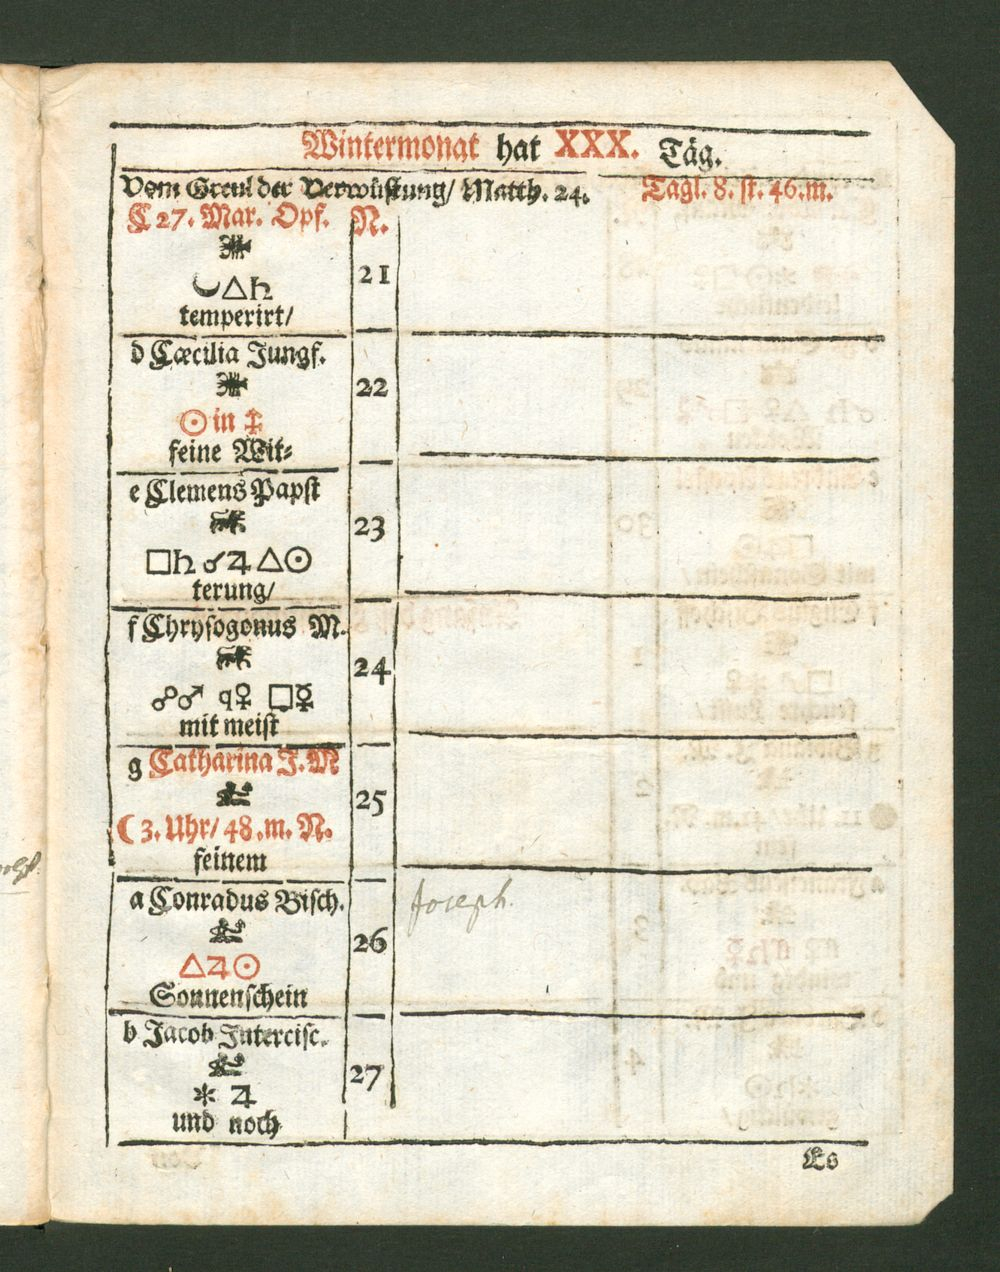 Wintermonat hat XXX. Täg.
Vom Greul der Verwüstung/ Matth. 24. Tagl. 8. st. 46. m.
C 27. Mar. Opf. N.
21
☽△♄
temperirt/
d Cæcilia Jungf.
22
☉ in ♐
feine Wit⸗
e Clemens Papst
23
□♄ ☌♃ △☉
terung/
f Chrysogonus M.
24
☍♂ q♀ □☿
mit meist
g Catharina J. M
25
☾ 3. Uhr/ 48. m. N.
feinem
a Conradus Bisch.
26 Joseph.
△♃☉
Sonnenschein
b Jacob Intercisc.
27
⚹ ♃
und noch
Es